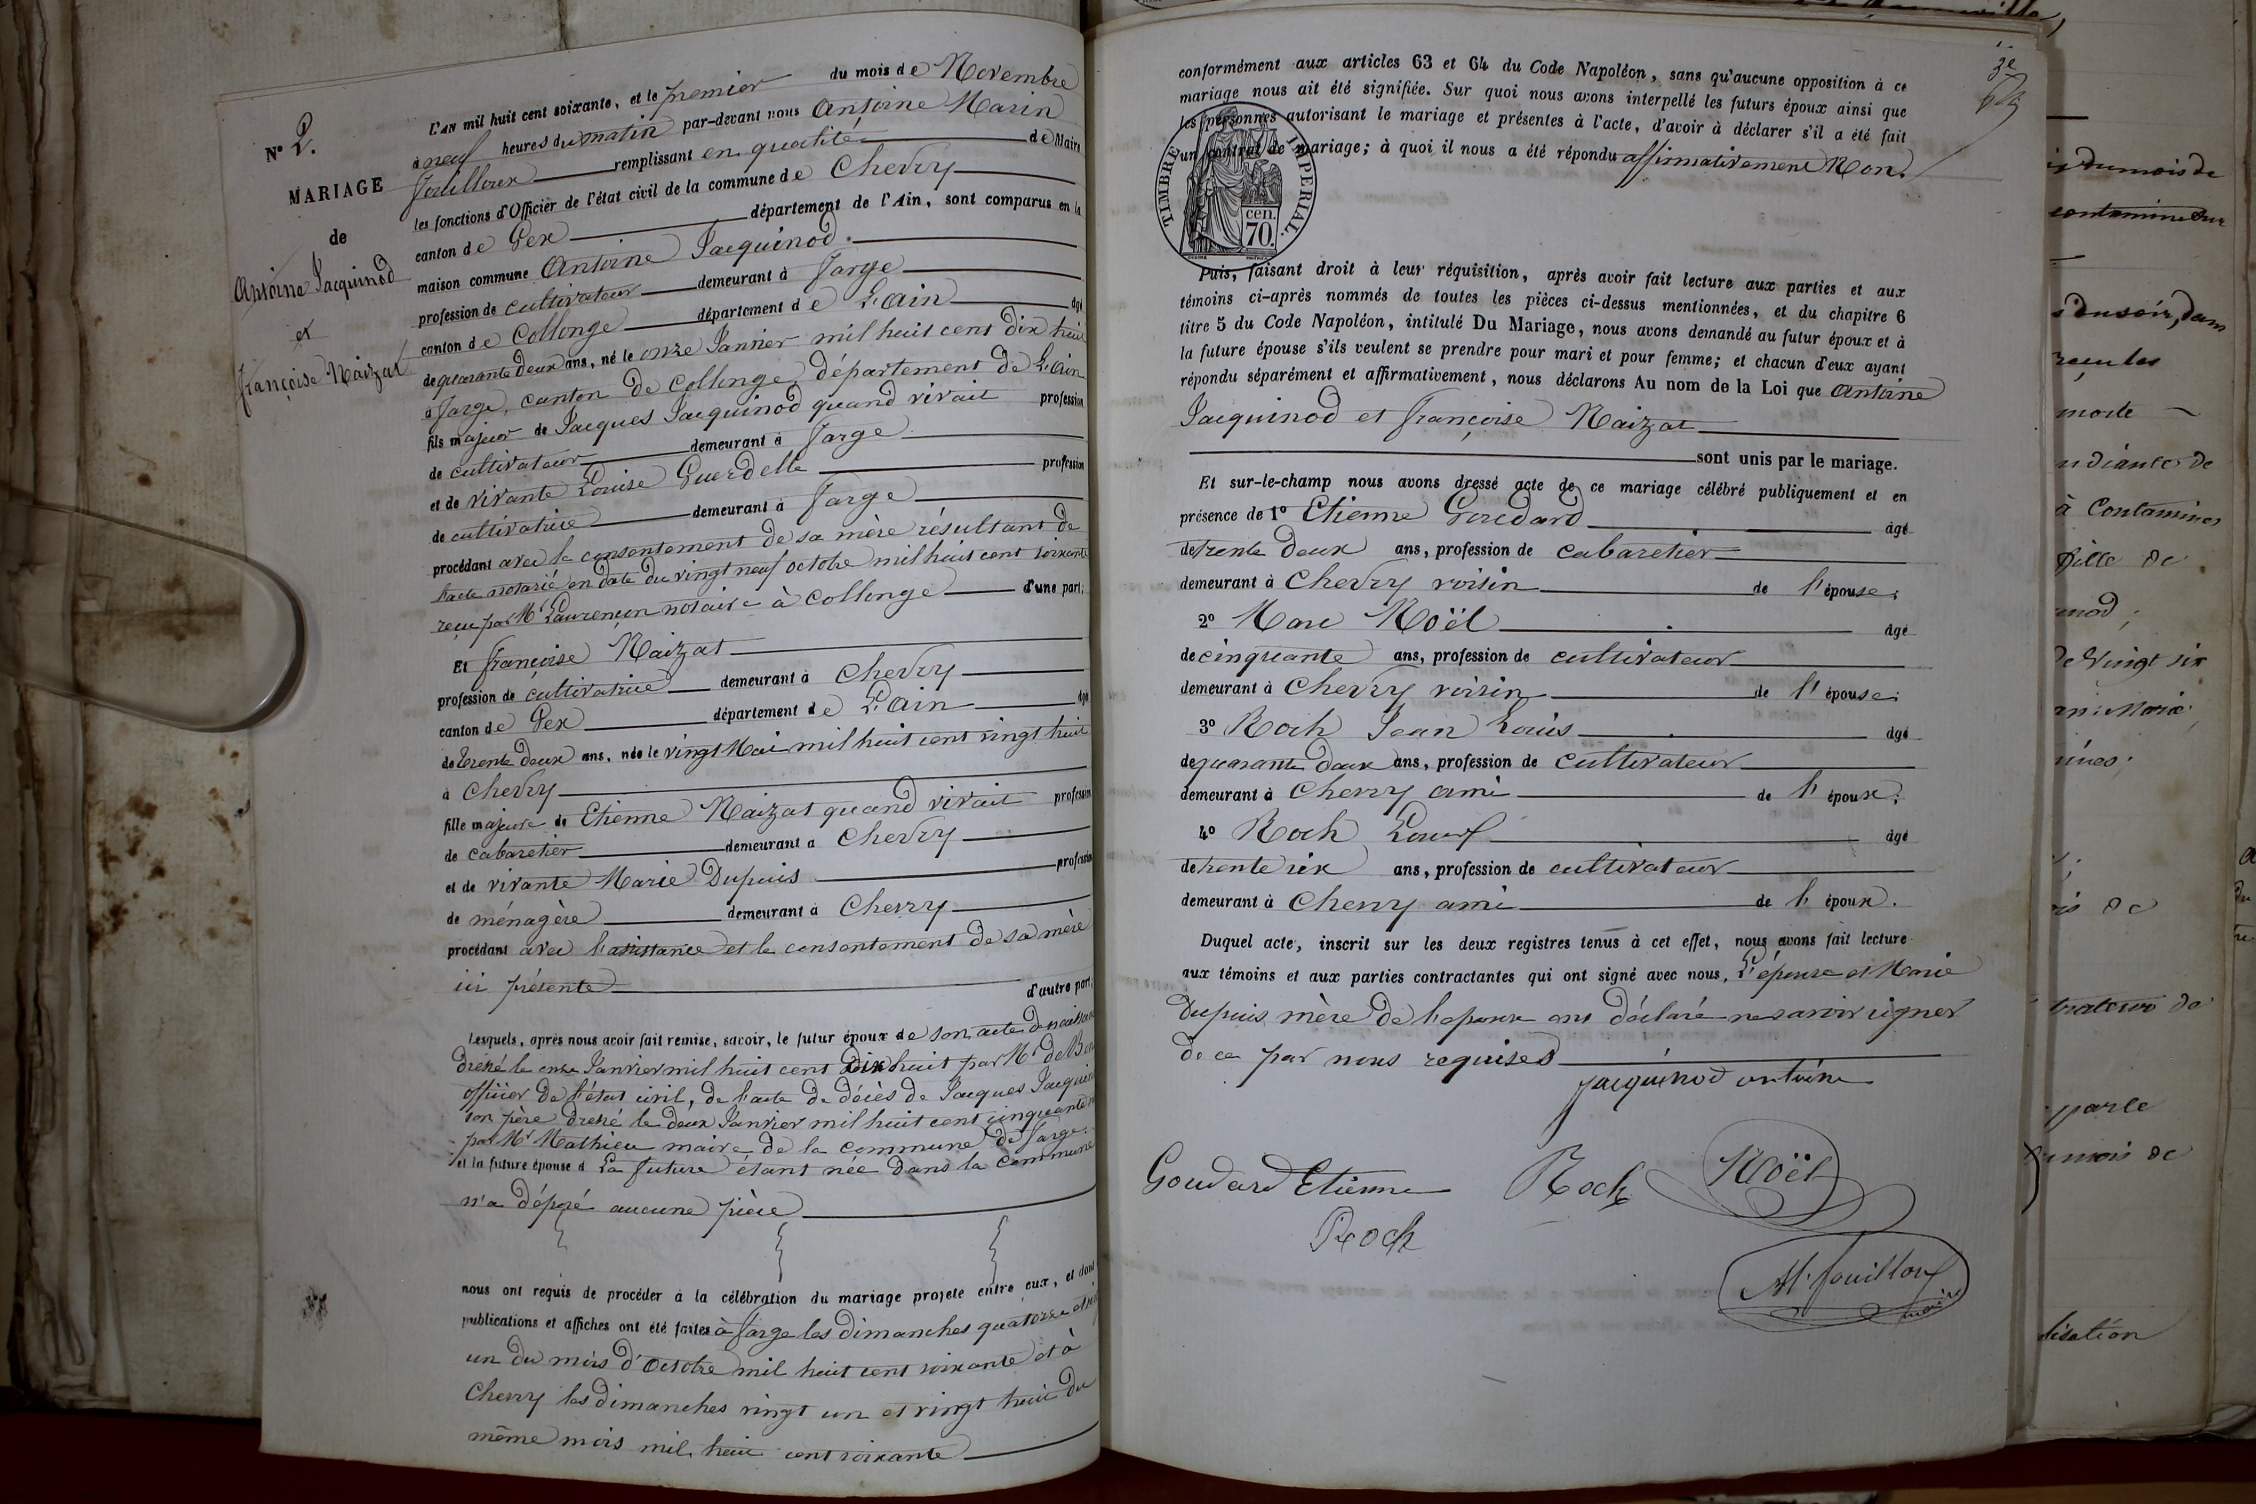 N° 2.
MARIAGE
de
Antoine Jacquinod
et
Françoise Naizat
L'AN mil huit cent soixante, et le premier du mois de Novembre
à neuf heures du matin par-devant nous Antoine Marin
Fouilloux remplissant en qualité de Maire
les fonctions d'Officier de l'état civil de la commune de Chevry
canton de Gex département de l'Ain, sont comparus en la
maison commune Antoine Jacquinod
profession de cultivateur demeurant à Farge
canton de Collonge département de L'ain âgé
de quarante deux ans, né le onze Janvier mil huit cent dix huit
à Farge, canton de Collonge département de L'ain
fils majeur de Jacques Jacquinod quand vivait profession
de cultivateur demeurant à Farge
et de vivante Louise Guerdelle profession
de cultivatrice demeurant à Farge
procédant avec le consentement de sa mère résultant de
l'acte notarié en date du vingt neuf octobre mil huit cent soixante
reçu par Mr Laurençon notaire à Collonge d'une part;
Et Françoise Naizat
profession de cultivatrice demeurant à Chevry
canton de Gex département de L'ain âgé
de trente deux ans, née le vingt Mai mil huit cent vingt huit
à Chevry
fille majeure de Etienne Naizat quand vivait profession
de cabaretier demeurant à Chevry
et de vivante Marie Dupuis profession
de ménagère demeurant à Chevry
procédant avec l'assistance et le consentement de sa mère
ici présente d'autre part;
Lesquels, après nous avoir fait remise, savoir, le futur époux de son acte de naissance
dressé le onze Janvier mil huit cent dix huit par Mr de
officier de l'état civil, de l'acte de décès de Jacques Jacquinod
son père dressé le deux Janvier mil huit cent cinquante
par Mr Mathieu maire de la commune de Farge.
et la future épouse d La future étant née dans la commune
n'a déposé aucune pièce
nous ont requis de procéder à la célébration du mariage projeté entre eux, et dont
publications et affiches ont été faites à Farge les dimanches quatorze et vingt
un du mois d'Octobre mil huit cent soixante et à
Chevry les dimanches vingt un et vingt huit du
même mois mil huit cent soixante
conformément aux articles 63 et 64 du Code Napoléon, sans qu'aucune opposition à ce
mariage nous ait été signifiée. Sur quoi nous avons interpellé les futurs époux ainsi que
les personnes autorisant le mariage et présentes à l'acte, d'avoir à déclarer s'il a été fait
un contrat de mariage; à quoi il nous a été répondu affirmativement Non.
TIMBRE IMPERIAL.
cen.
70.
Puis, faisant droit à leur réquisition, après avoir fait lecture aux parties et aux
témoins ci-après nommés de toutes les pièces ci-dessus mentionnées, et du chapitre 6
titre 5 du Code Napoléon, intitulé Du Mariage, nous avons demandé au futur époux et à
la future épouse s'ils veulent se prendre pour mari et pour femme; et chacun d'eux ayant
répondu séparément et affirmativement, nous déclarons Au nom de la Loi que Antoine
Jacquinod et Françoise Naizat
sont unis par le mariage.
Et sur-le-champ nous avons dressé acte de ce mariage célébré publiquement et en
présence de 1° Etienne Goudard âgé
de trente deux ans, profession de cabaretier
demeurant à Chevry voisin de l'épouse;
2° Marc Noël âgé
de cinquante ans, profession de cultivateur
demeurant à Chevry voisin de l'épouse;
3° Roch Jean Louis âgé
de quarante deux ans, profession de cultivateur
demeurant à Chevry ami de l'époux;
4° Roch âgé
de trente six ans, profession de cultivateur
demeurant à Chevry ami de l'époux.
Duquel acte, inscrit sur les deux registres tenus à cet effet, nous avons fait lecture
aux témoins et aux parties contractantes qui ont signé avec nous, L'épouse et Marie
Dupuis mère de l'épouse ont déclaré ne savoir signer
de ce par nous requises
jacquinod antoine
Goudard Etienne Roch Noël
Roch
M. fouilloux
maire